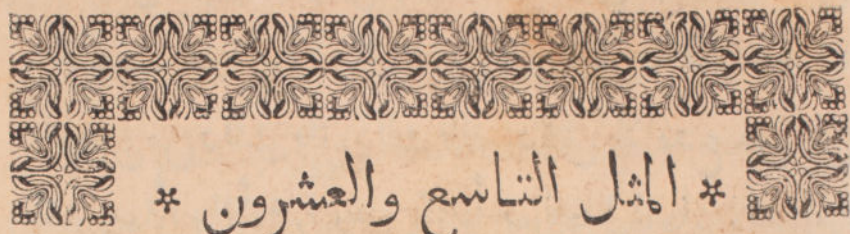 * المثل التاسع والعشرون *